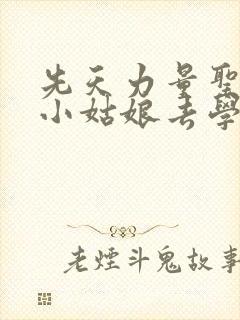 先天力量聖
小姑娘去學
老煙斗鬼故事